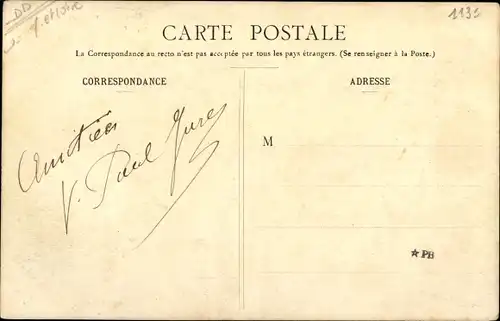 DD
et Loire
1132
CARTE POSTALE
La Correspondance au recto n'est pas acceptée par tous les pays étrangers. (Se renseigner à la Poste.)
CORRESPONDANCE
ADRESSE
Amitiés
V. Paul
M
★ PB